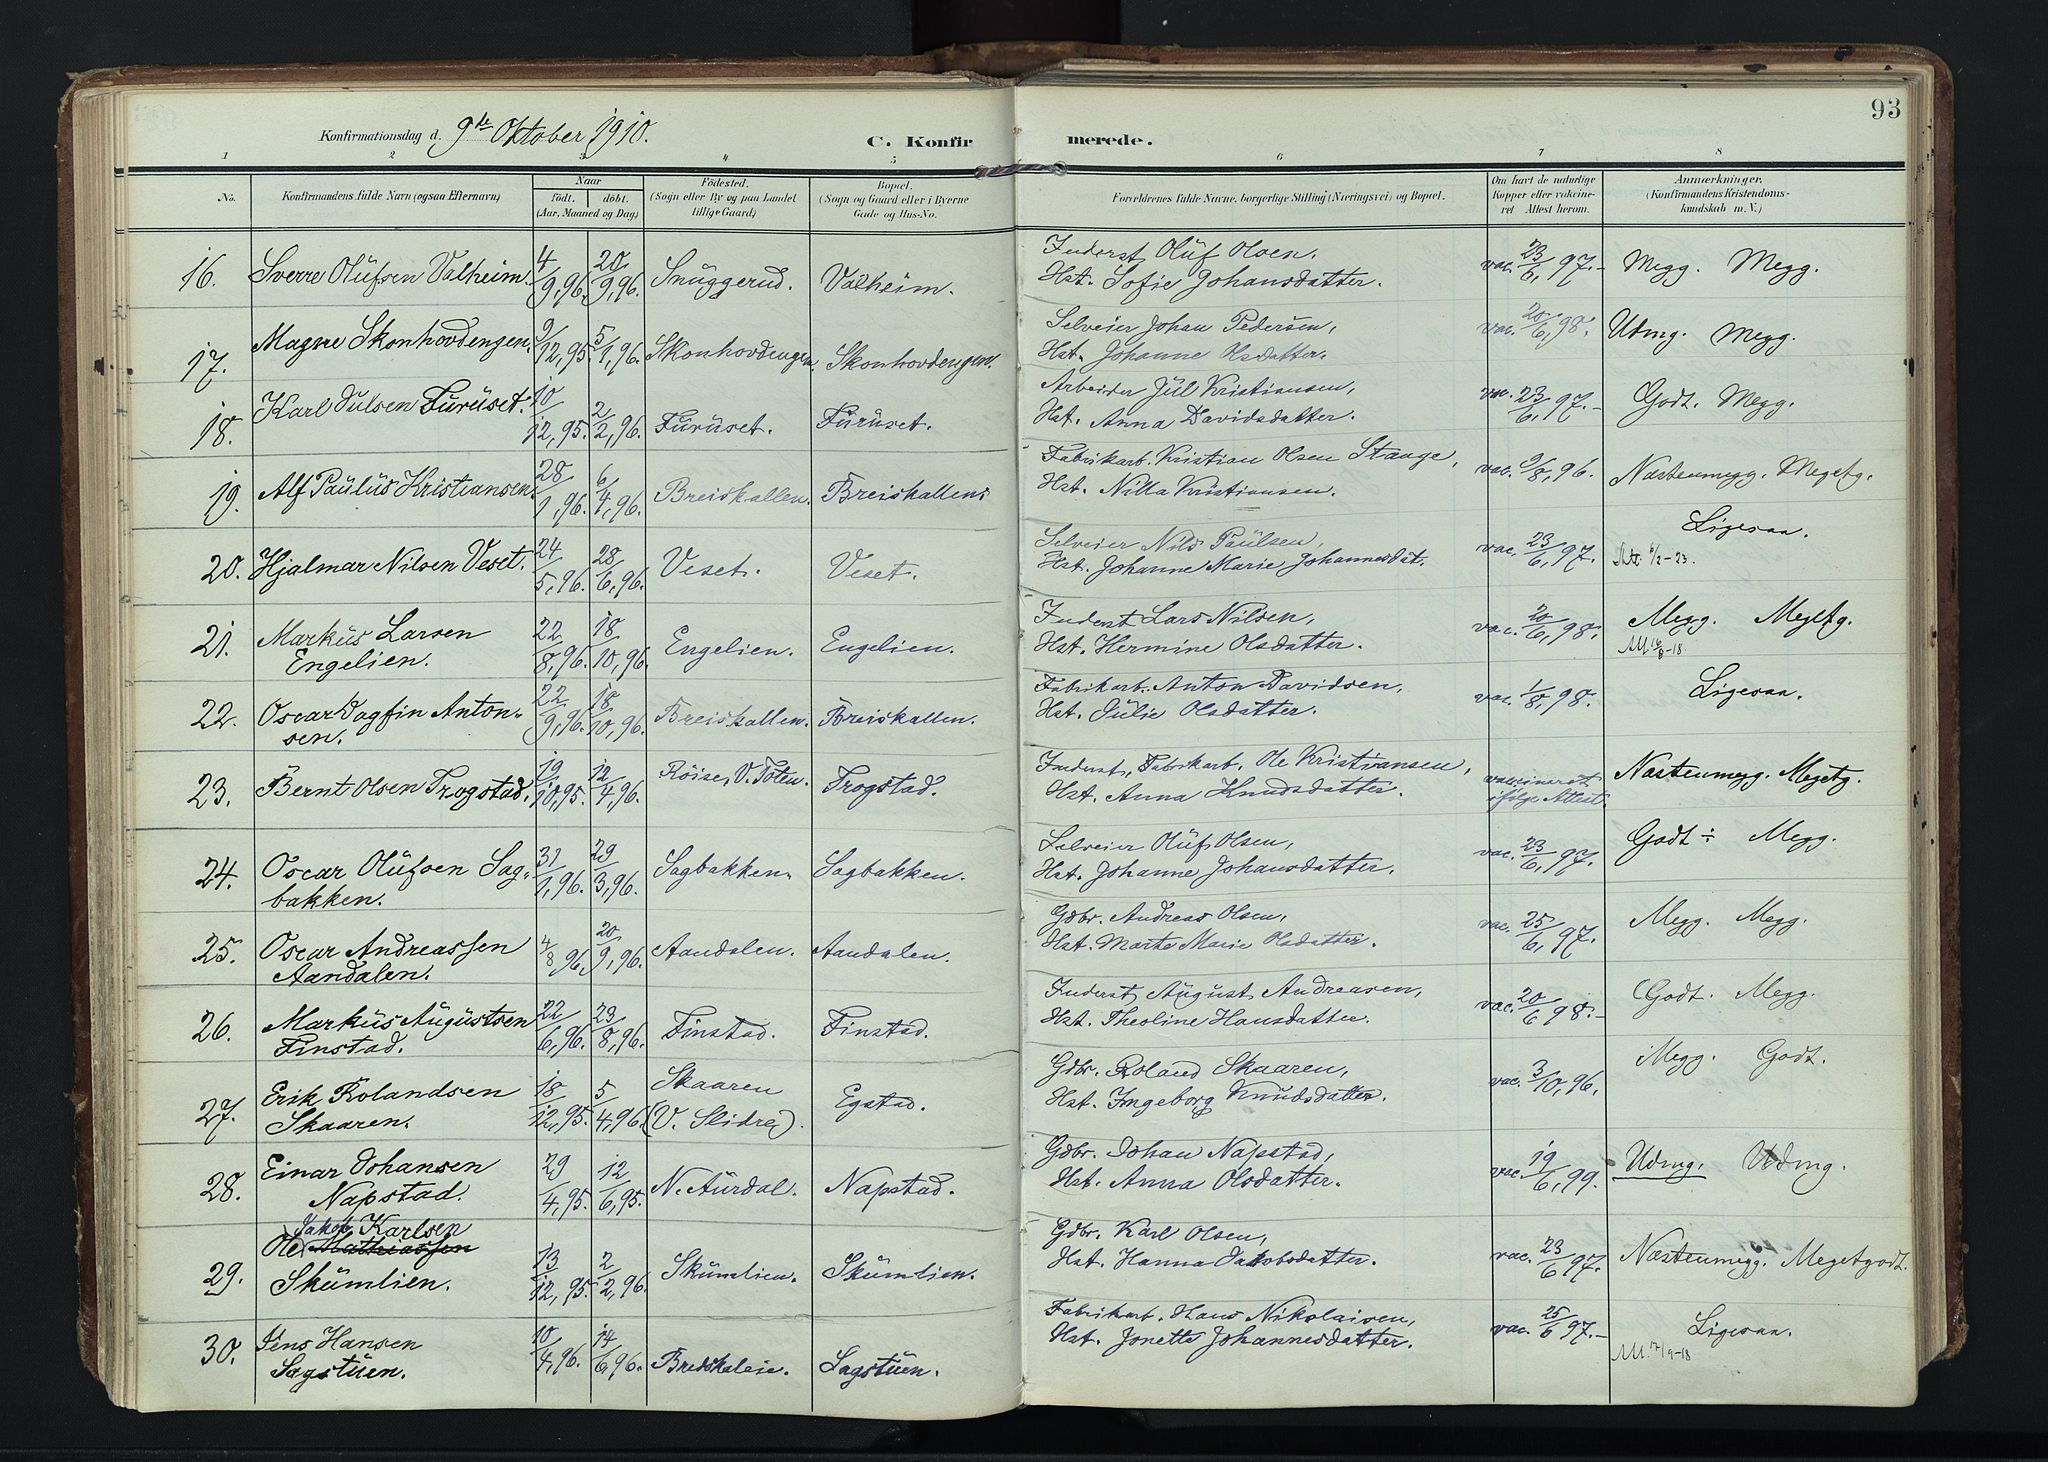 93
Konfirmationsdag d. 9de Oktober 1910. C. Konfirmerede.
1 2 3 4 5 6 7 8
No. Konfirmandens fulde Navn (ogsaa Efternavn) Naar født. døbt. (Aar, Maaned og Dag) Fødested. (Sogn eller By og paa Landet tillige Gaard) Bopæl. (Sogn og Gaard eller i Byerne Gade og Hus-No. Forældrenes fulde Navne, borgerlige Stilling (Næringsvei) og Bopæl. Om havt de naturlige Kopper eller vaccineret Attest herom. Anmærkninger. (Konfirmandens Kristendomskundskab m. V.)
16. Sverre Olüfsen Valheim. 4/9,96. 20/9,96. Snüggerud. Valheim. Inderst Olüf Olsen. Hst. Sofie Johansdatter. vac. 23/6,97.- Megg. Megg.
17. Magne Skonhovdengen. 9/12,95. 5/1,96. Skonhovdengen. Skonhovdengen. Selveier Johan Pedersen, Hst. Johanne Olsdatter. vac. 20/6,98. Udmg. Megg.
18. Karl Julsen Fürüset. 10/12,95. 2/2,96. Fürüset. Fürüset. Arbeider Jül Kristiansen, Hst. Anna Davidsdatter. vac. 23/6,97.- Godt. Megg.
19. Alf Paulüs Kristiansen. 28/1,96. 6/4,96. Breiskallen. Breiskallen. Fabrikarb. Kristian Olsen Stange, Hst. Nilla Kristiansen. vac. 9/8,96. Næstenmegg. Megetg.
20. Hjalmar Nilsen Veset. 24/5,96. 28/6,96. Veset. Veset. Selveier Nils Paülsen, Hst. Johanne Marie Johannesdat. vac. 23/6,97. Ligesaa.
21. Markus Larsen Engelien. 22/8,96. 18/10,96. Engelien. Engelien. Inderst Lars Nilsen, Hst. Hermine Olsdatter. vac. 20/6,98. Megg. Megetg.
22. Oscar Dagfin Antonsen. 22/9,96. 18/10,96. Breiskallen. Breiskallen. Fabrikarb. Anton Davidsen, Hst. Jülie Olsdatter. vac. 1/8,98. Ligesaa.
23. Bernt Olsen Trogstad. 19/10,95. 12/4,96. Röise, V. Toten. Trogstad. Inderst, Fabrikarb. Ole Kristiansen, Hst. Anna Knudsdatter. vaccineret ifølge Attest. Næstenmegg. Megetg.
24. Oscar Olüfsen Sagbakken. 31/1,96. 29/3,96. Sagbakken. Sagbakken. Selveier Olüf Olsen, Hst. Johanne Johansdatter. vac. 23/6,97. Godt ÷ Megg.
25. Oscar Andreassen Aandalen. 4/8 96. 20/9,96. Aandalen. Aandalen. Gdbr. Andreas Olsen, Hst. Marte Marie Olsdatter. vac. 25/6,97. Megg. Megg.
26. Markus Augüstsen Finstad. 22/6,96. 23/8,96. Finstad. Finstad. Inderst August Andreasen, Hst. Theoline Hansdatter. vac. 20/6 98.- Godt. Megg.
27. Erik Rolandsen Skaaren. 18/12,95. 5/4,96. Skaaren (V. Slidre). Egstad. Gdbr. Roland Skaaren, Hst. Ingeborg Knudsdatter. vac. 3/10,96. Megg. Godt.
28. Einar Johansen Napstad. 29/4,95. 12/6,95. N. Aürdal. Napstad. Gdbr. Johan Napstad, Hst. Anna Olsdatter. vac. 19/6,99. Udmg. Udmg.
29. Ole Jakob Karlsen Mathiassen Skümlien. 13/12,95. 2/2,96. Skümlien. Skümlien. Gdbr. Karl Olsen, Hst. Hanna Jakobsdatter. vac. 23/6 97. Næstenmegg. Megetgodt.
30. Jens Hansen Sagstüen. 10/4,96. 14/6,96. Bredskaleie. Sagstüen. Fabrikarb. Hans Nikolaisen, Hst. Jonette Johannesdatter. vac. 25/6 97.- Ligesaa.